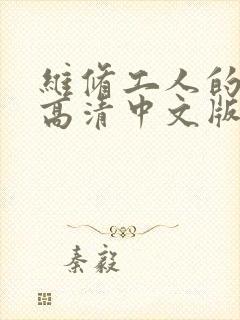 維脩工人的
高清中文版
秦毅